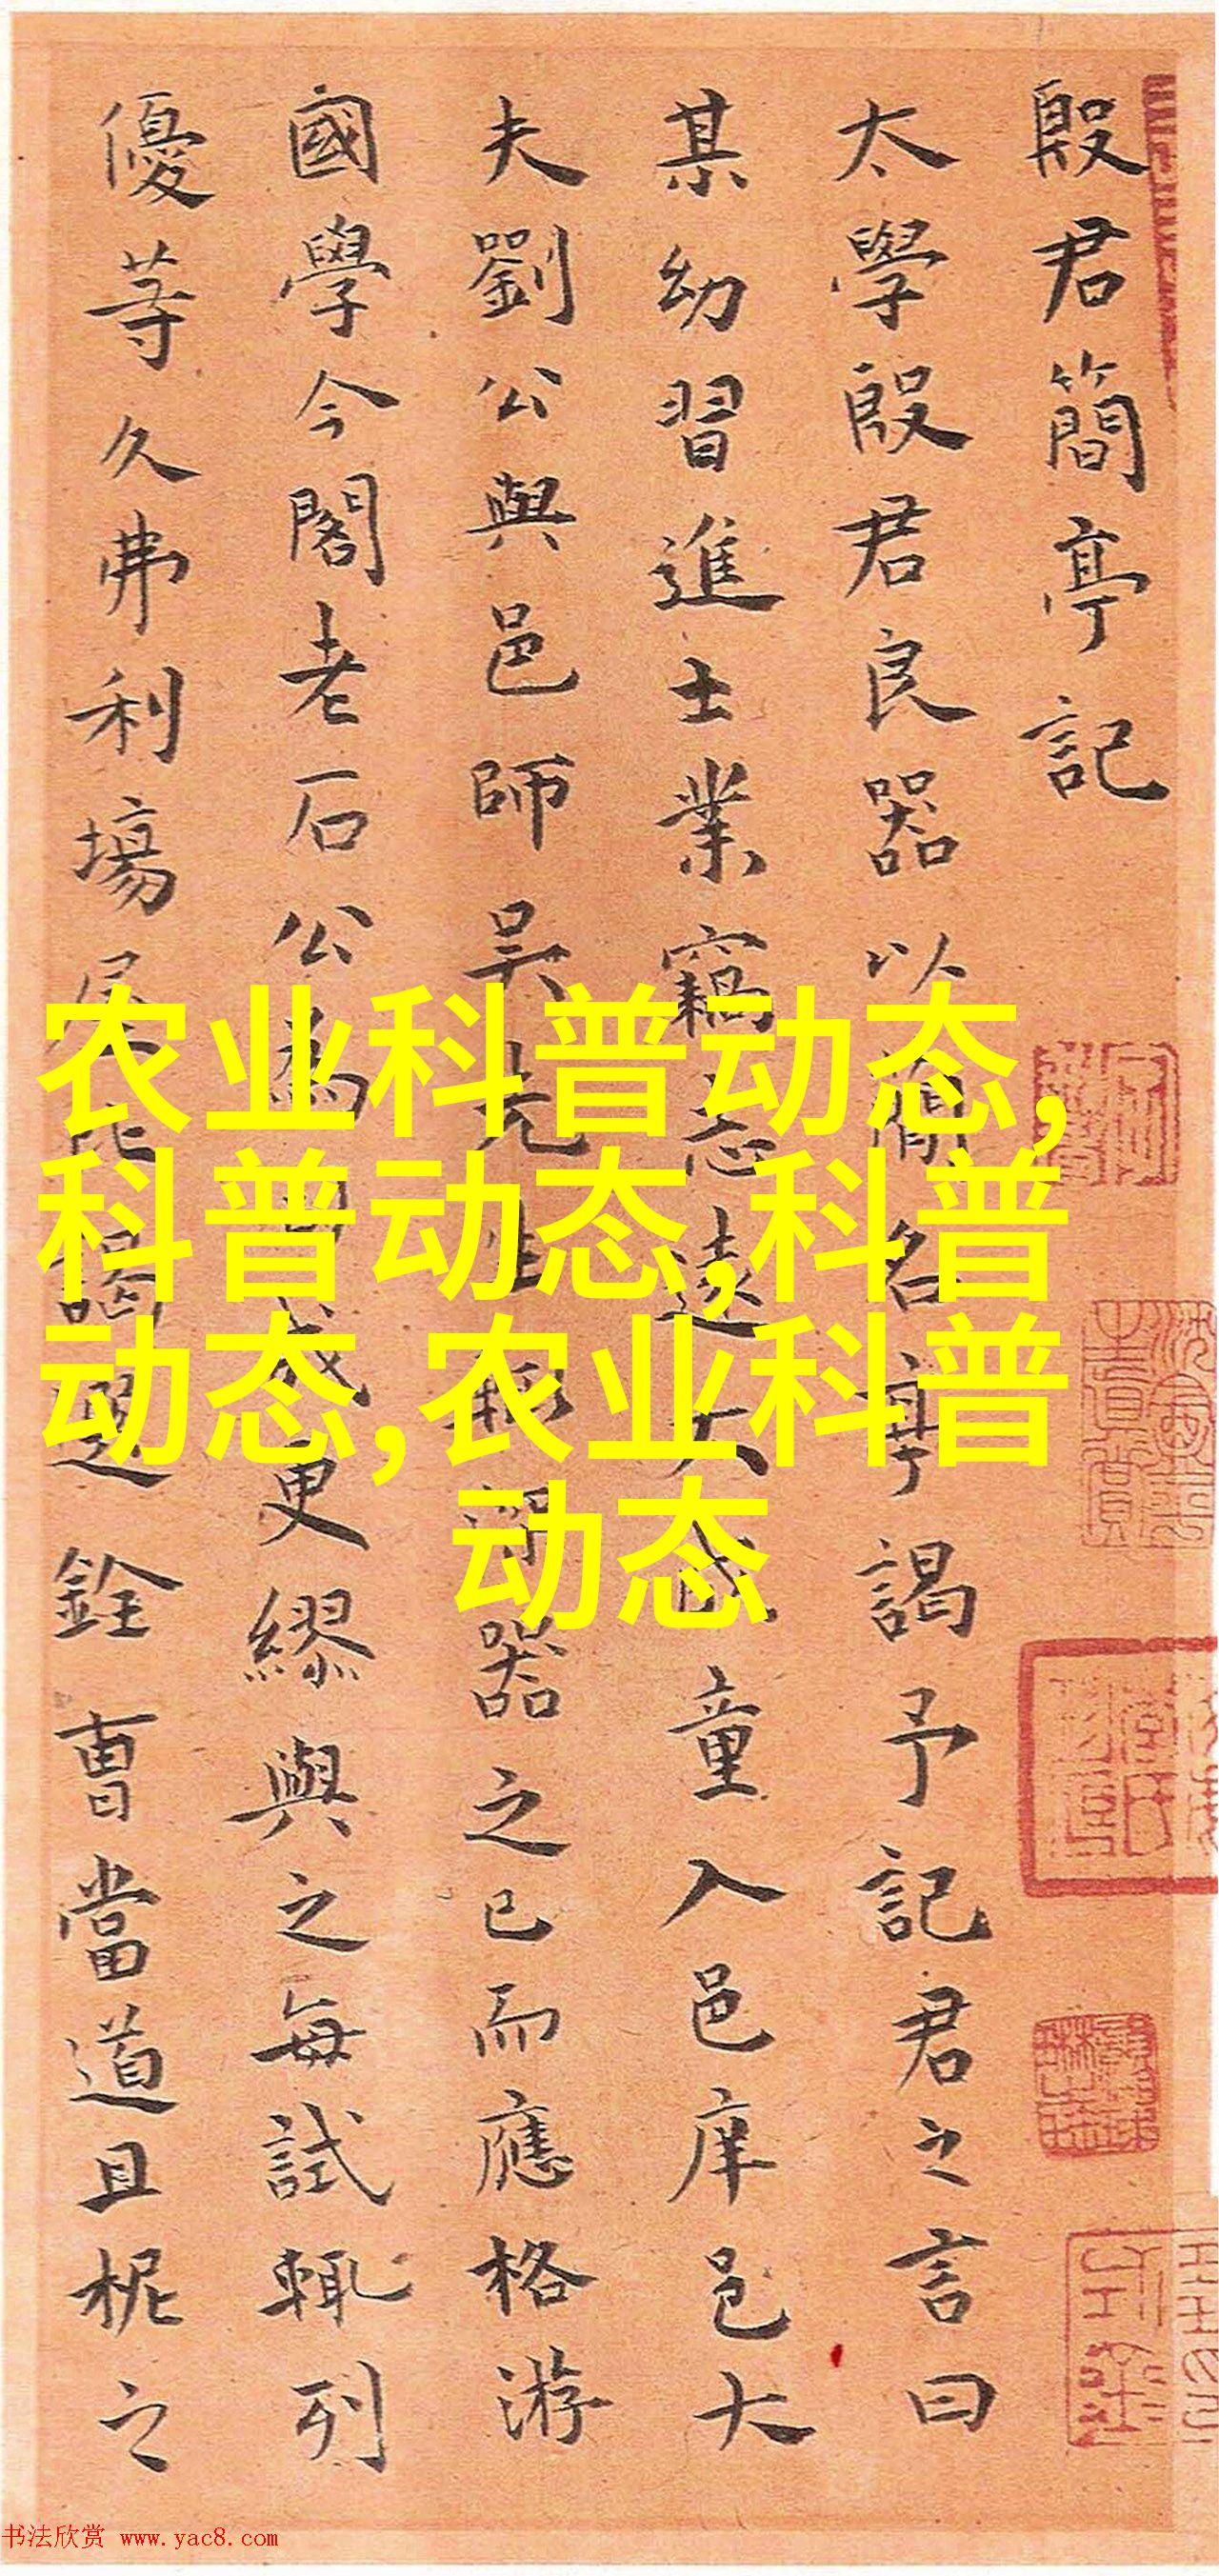 殷君簡亭記
太學殷君良器以簡名亭謁予記君之言曰
某幼習進士業竊志遠大成童入邑庠邑大
夫劉公與邑師吳先生輒器之已而應格游
國學今閣老石公為司成更繆與之每試輒列
優等久弗利場屋比謁選銓曹當道且柅之
农业科普动态,
科普动态,科普
动态,农业科普
动态
书法欣赏 www.yac8.com